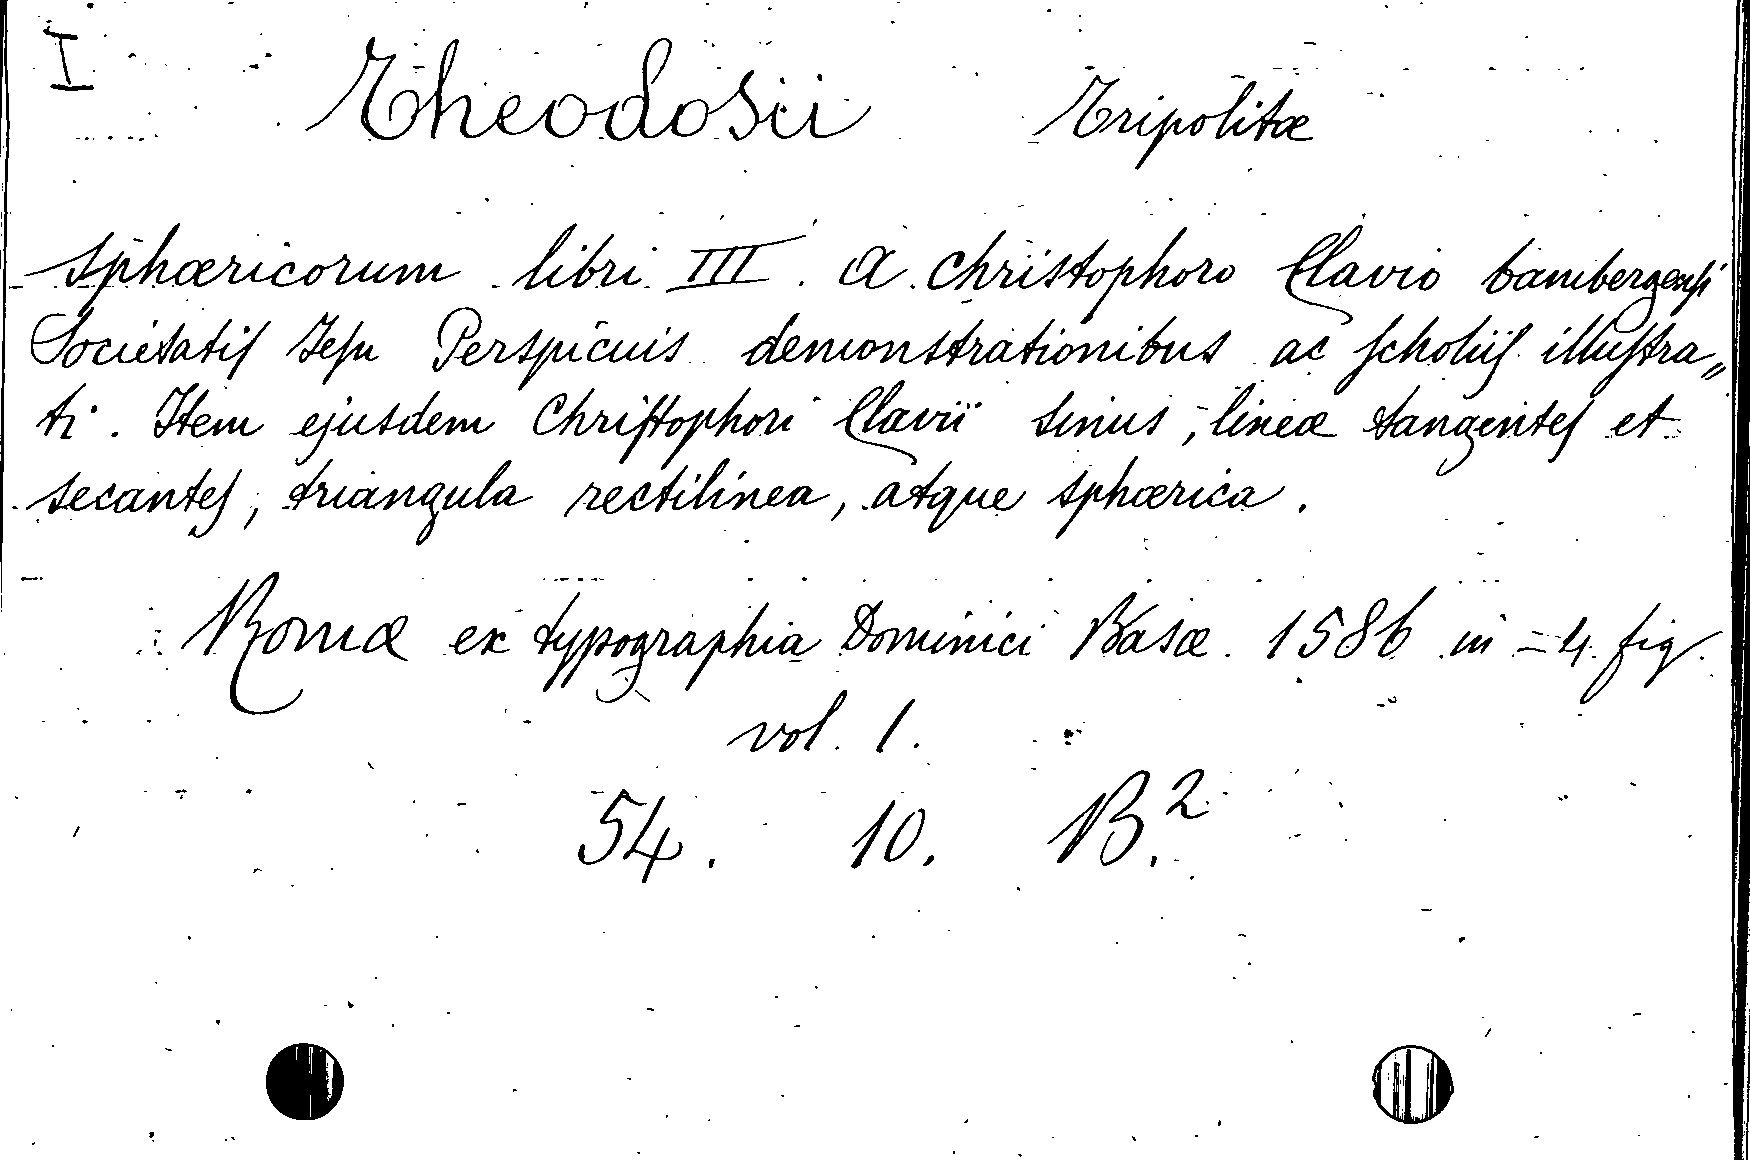 I
Theodosii Tripolitæ
Sphæricorum libri III. a Christophoro Clavio bambergensi
Societatis Jesu Perspicuis demonstrationibus ac scholiis illustra„
ti. Item ejusdem Christophori Clavii sinus, lineæ tangentes et
secantes, triangula rectilinea, atque sphærica.
Romæ ex typographia Dominici Basæ. 1586 in=4. fig.
vol. 1.
54. 10. B.²